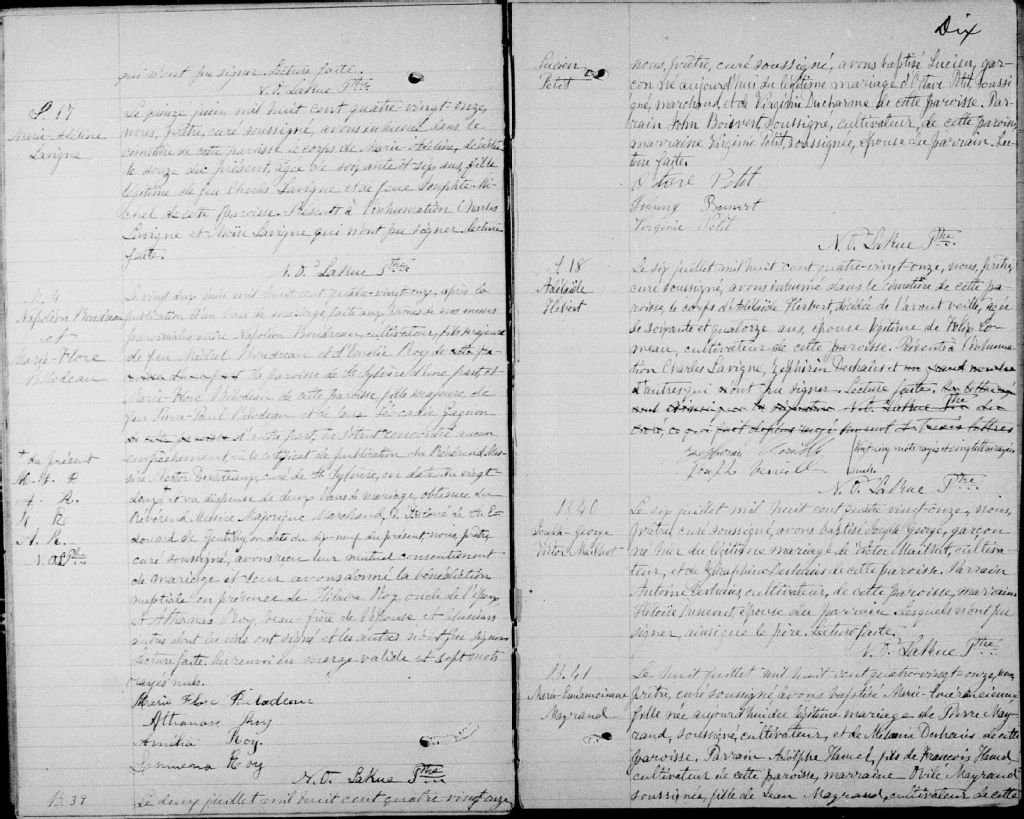 qui n'ont pu signer. Lecture faite.
N. O. LaRue Ptre
S. 17
Marie-Adeline
Lavigne
Le quinze juin mil huit cent quatre-vingt-onze,
nous, prêtre, curé soussigné, avons inhumé dans le
cimetière de cette paroisse le corps de Marie-Adeline, décédée
le douze du présent, âgée de soixante et six ans, fille
légitime de feu Charles Lavigne et de feue Josephte Mi-
chel de cette paroisse. Présents à l'inhumation Charles
Lavigne et Moïse Lavigne qui n'ont pu signer. Lecture
faite.
N. O. LaRue Ptre
M. 4
Napoléon Boudreau
et
Marie-Flore
Bilodeau
Le vingt-deux juin mil huit cent quatre-vingt-onze, après la
publication d'un ban de mariage faite aux prônes de nos messes
paroissiales entre Napoléon Boudreau, cultivateur, fils majeur
de feu Michel Boudreau et d'Emélie Roy de
la paroisse de St Sylvère d'une part, et
Marie-Flore Bilodeau de cette paroisse, fille majeure de
feu Pierre-Paul Bilodeau et de feue Léocadie Gagnon
d'autre part, ne s'étant rencontré aucun
empêchement, vu le certificat de publication du Révérend Mes-
sire Nestor Duguay, curé de St Sylvère, en date du vingt-
deux † et vu dispense de deux bans de mariage, obtenue du
Révérend Messire Majorique Marchand, curé de St Ed-
ouard de Gentilly, en date du dix-neuf du présent, nous, prêtre,
curé soussigné, avons reçu leur mutuel consentement
de mariage et leur avons donné la bénédiction
nuptiale en présence de Hilaire Roy, oncle de l'époux,
d'Athanase Roy, beau-frère de l'épouse et plusieurs
autres dont les uns ont signé et les autres n'ont pu signer.
Lecture faite. Un renvoi en marge valide et sept mots
rayés nuls.
† du présent
M. F. B
A. R.
A. R.
N. O. L. Ptre
Marie Flore Bilodeau
Athanase Roy
Amélia Roy.
Roy
N. O. LaRue Ptre
B. 39
Le deux juillet mil huit cent quatre vingt-onze,
Dix
Lucien
Petit
nous, prêtre, curé soussigné, avons baptisé Lucien, gar-
çon né aujourd'hui du légitime mariage d'Octave Petit, soussi-
gné, marchand, et de Virginie Ducharme de cette paroisse. Par-
rain John Boisvert, soussigné, cultivateur, de cette paroisse,
marraine Virginie Petit, soussignée, épouse du parrain. Lec-
ture faite.
Octave Petit
Johnny Boisvert
Virginie Petit
N. O. LaRue Ptre.
S. 18
Adélaïde
Hébert
Le six juillet mil huit cent quatre-vingt-onze, nous, prêtre,
curé soussigné, avons inhumé dans le cimetière de cette pa-
roisse, le corps d'Adélaïde Hébert, décédée de l'avant veille, âgée
de soixante et quatorze ans, épouse légitime de Félix Co-
meau, cultivateur de cette paroisse. Présents à l'inhuma-
tion Charles Lavigne, Zéphirin Deshaies et
d'autres qui n'ont pu signer. Lecture faite.
N. O. LaRue Ptre
Joseph
Vingt-cinq mots rayés et
nuls.
N. O. LaRue Ptre.
B. 40
Joseph-George
Victor Mailhot
Le six juillet mil huit cent quatre vingt-onze, nous,
prêtre, curé soussigné, avons baptisé Joseph George, garçon
né hier du légitime mariage de Victor Mailhot, cultiva-
teur, et de Séraphine Deshaies de cette paroisse. Parrain
Antoine Deshaies, cultivateur, de cette paroisse, marraine
Héloïse Dumont, épouse du parrain lesquels n'ont pu
signer, ainsi que le père. Lecture faite.
N. O. LaRue Ptre
B. 41
Mayrand
Le huit juillet mil huit cent quatre-vingt-onze, nous,
prêtre, curé soussigné, avons baptisé Marie-
fille née aujourd'hui du légitime mariage de Pierre May-
rand, soussigné, cultivateur, et de Mélanie Deshaies de cette
paroisse. Parrain Adolphe Hamel, fils de François Hamel,
cultivateur de cette paroisse, marraine Mayrand
soussignée, fille de Jean Mayrand, cultivateur de cette